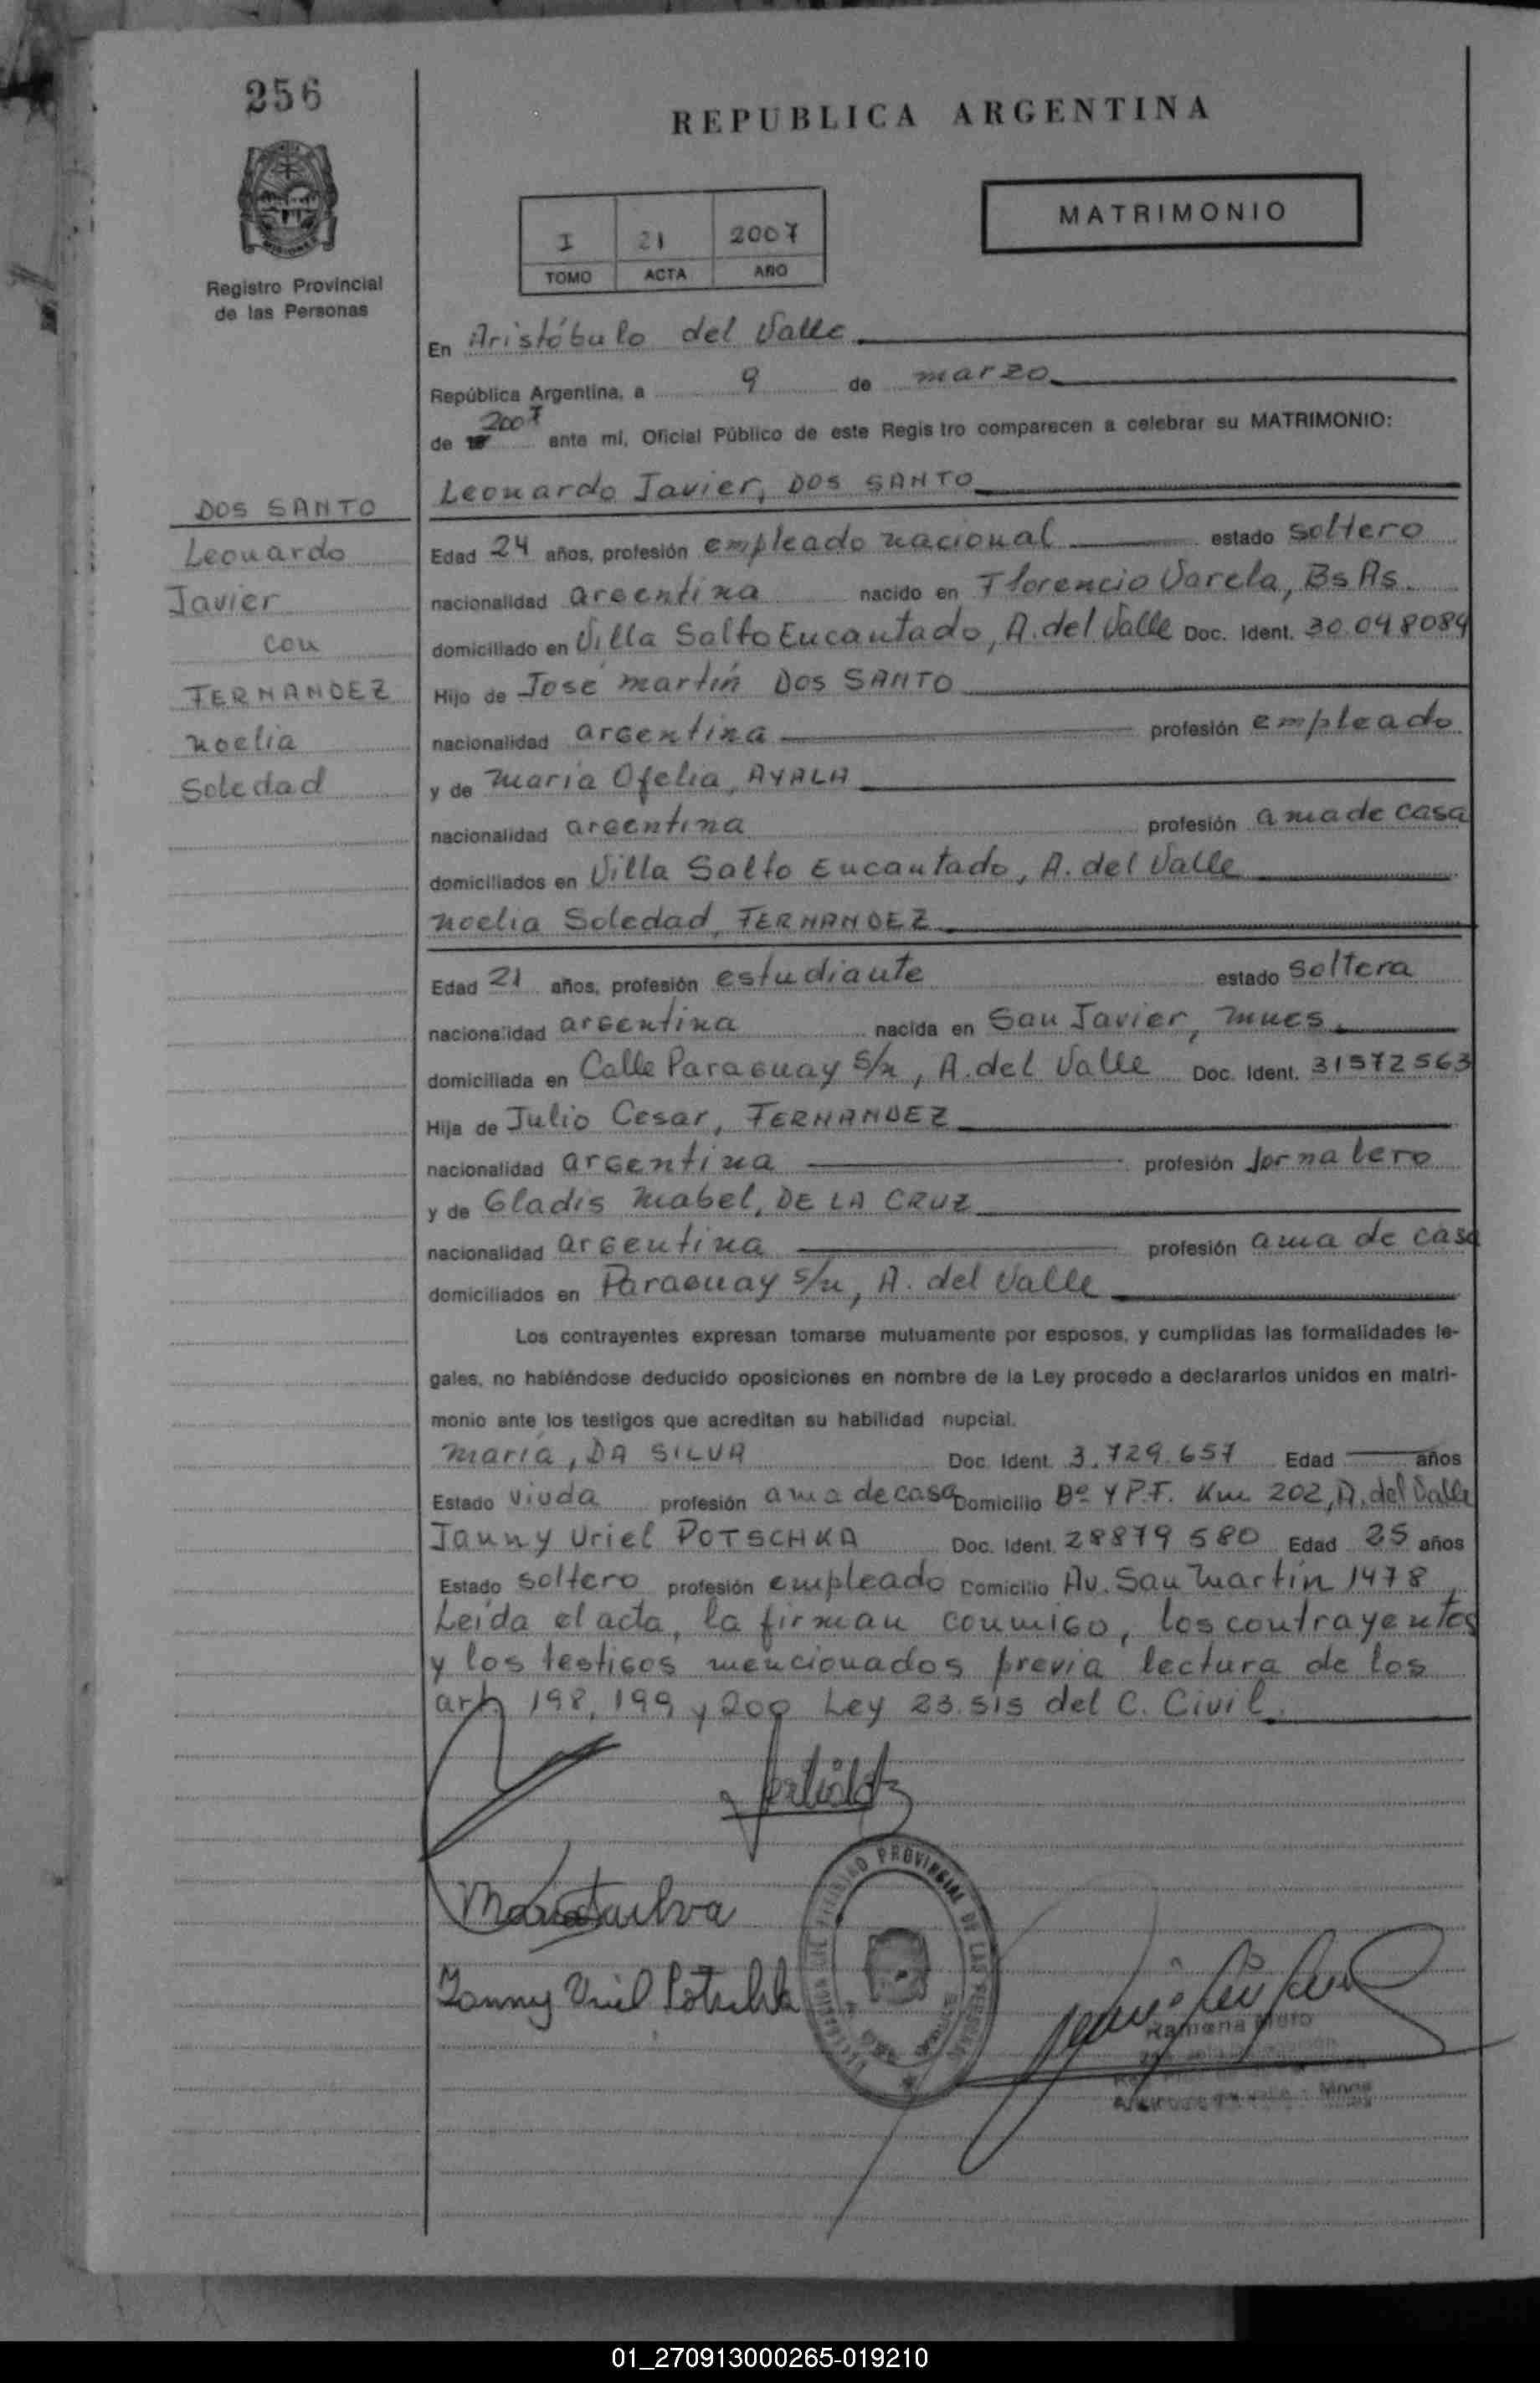 256
REPUBLICA ARGENTINA
MATRIMONIO
I 21 2007
TOMO ACTA AÑO
Registro Provincial
de las Personas
En Aristóbulo del Valle
República Argentina, a 9 de marzo
de 2007 ante mí, Oficial Público de este Regis tro comparecen a celebrar su MATRIMONIO:
Leonardo Javier, DOS SANTO
DOS SANTO
Leonardo
Javier
con
FERNANDEZ
Noelia
Soledad
Edad 24 años, profesión empleado nacional estado soltero
nacionalidad argentina nacido en Florencio Varela, Bs As.
domiciliado en Villa Salto Encantado, A. del Valle Doc. Ident. 30.048084
Hijo de José Martín DOS SANTO
nacionalidad argentina profesión empleado
y de María Ofelia, AYALA
nacionalidad argentina profesión ama de casa
domiciliados en Villa Salto Encantado, A. del Valle
Noelia Soledad, FERNANDEZ
Edad 21 años, profesión estudiante estado soltera
nacionalidad argentina nacida en San Javier, Mnes.
domiciliada en Calle Paraguay s/n, A. del Valle Doc. Ident. 31572563
Hija de Julio Cesar, FERNANDEZ
nacionalidad argentina profesión Jornalero
y de Gladis Mabel, DE LA CRUZ
nacionalidad argentina profesión ama de casa
domiciliados en Paraguay s/n, A. del Valle
Los contrayentes expresan tomarse mutuamente por esposos, y cumplidas las formalidades le-
gales, no habiéndose deducido oposiciones en nombre de la Ley procedo a declararlos unidos en matri-
monio ante los testigos que acreditan su habilidad nupcial.
María, DA SILVA Doc. Ident. 3.729.657 Edad años
Estado viuda profesión ama de casa Domicilio Bº YPF. Km 202, A. del Valle
Janny Uriel POTSCHKA Doc. Ident. 28879580 Edad 25 años
Estado soltero profesión empleado Domicilio Av. San Martín 1478
Leída el acta, la firman conmigo, los contrayentes
y los testigos mencionados previa lectura de los
art. 198, 199 y 200 Ley 23.515 del C. Civil.
Janny Uriel Potschka
PROVINCIAL DE LAS PERSONAS
Ramona
01_270913000265-019210